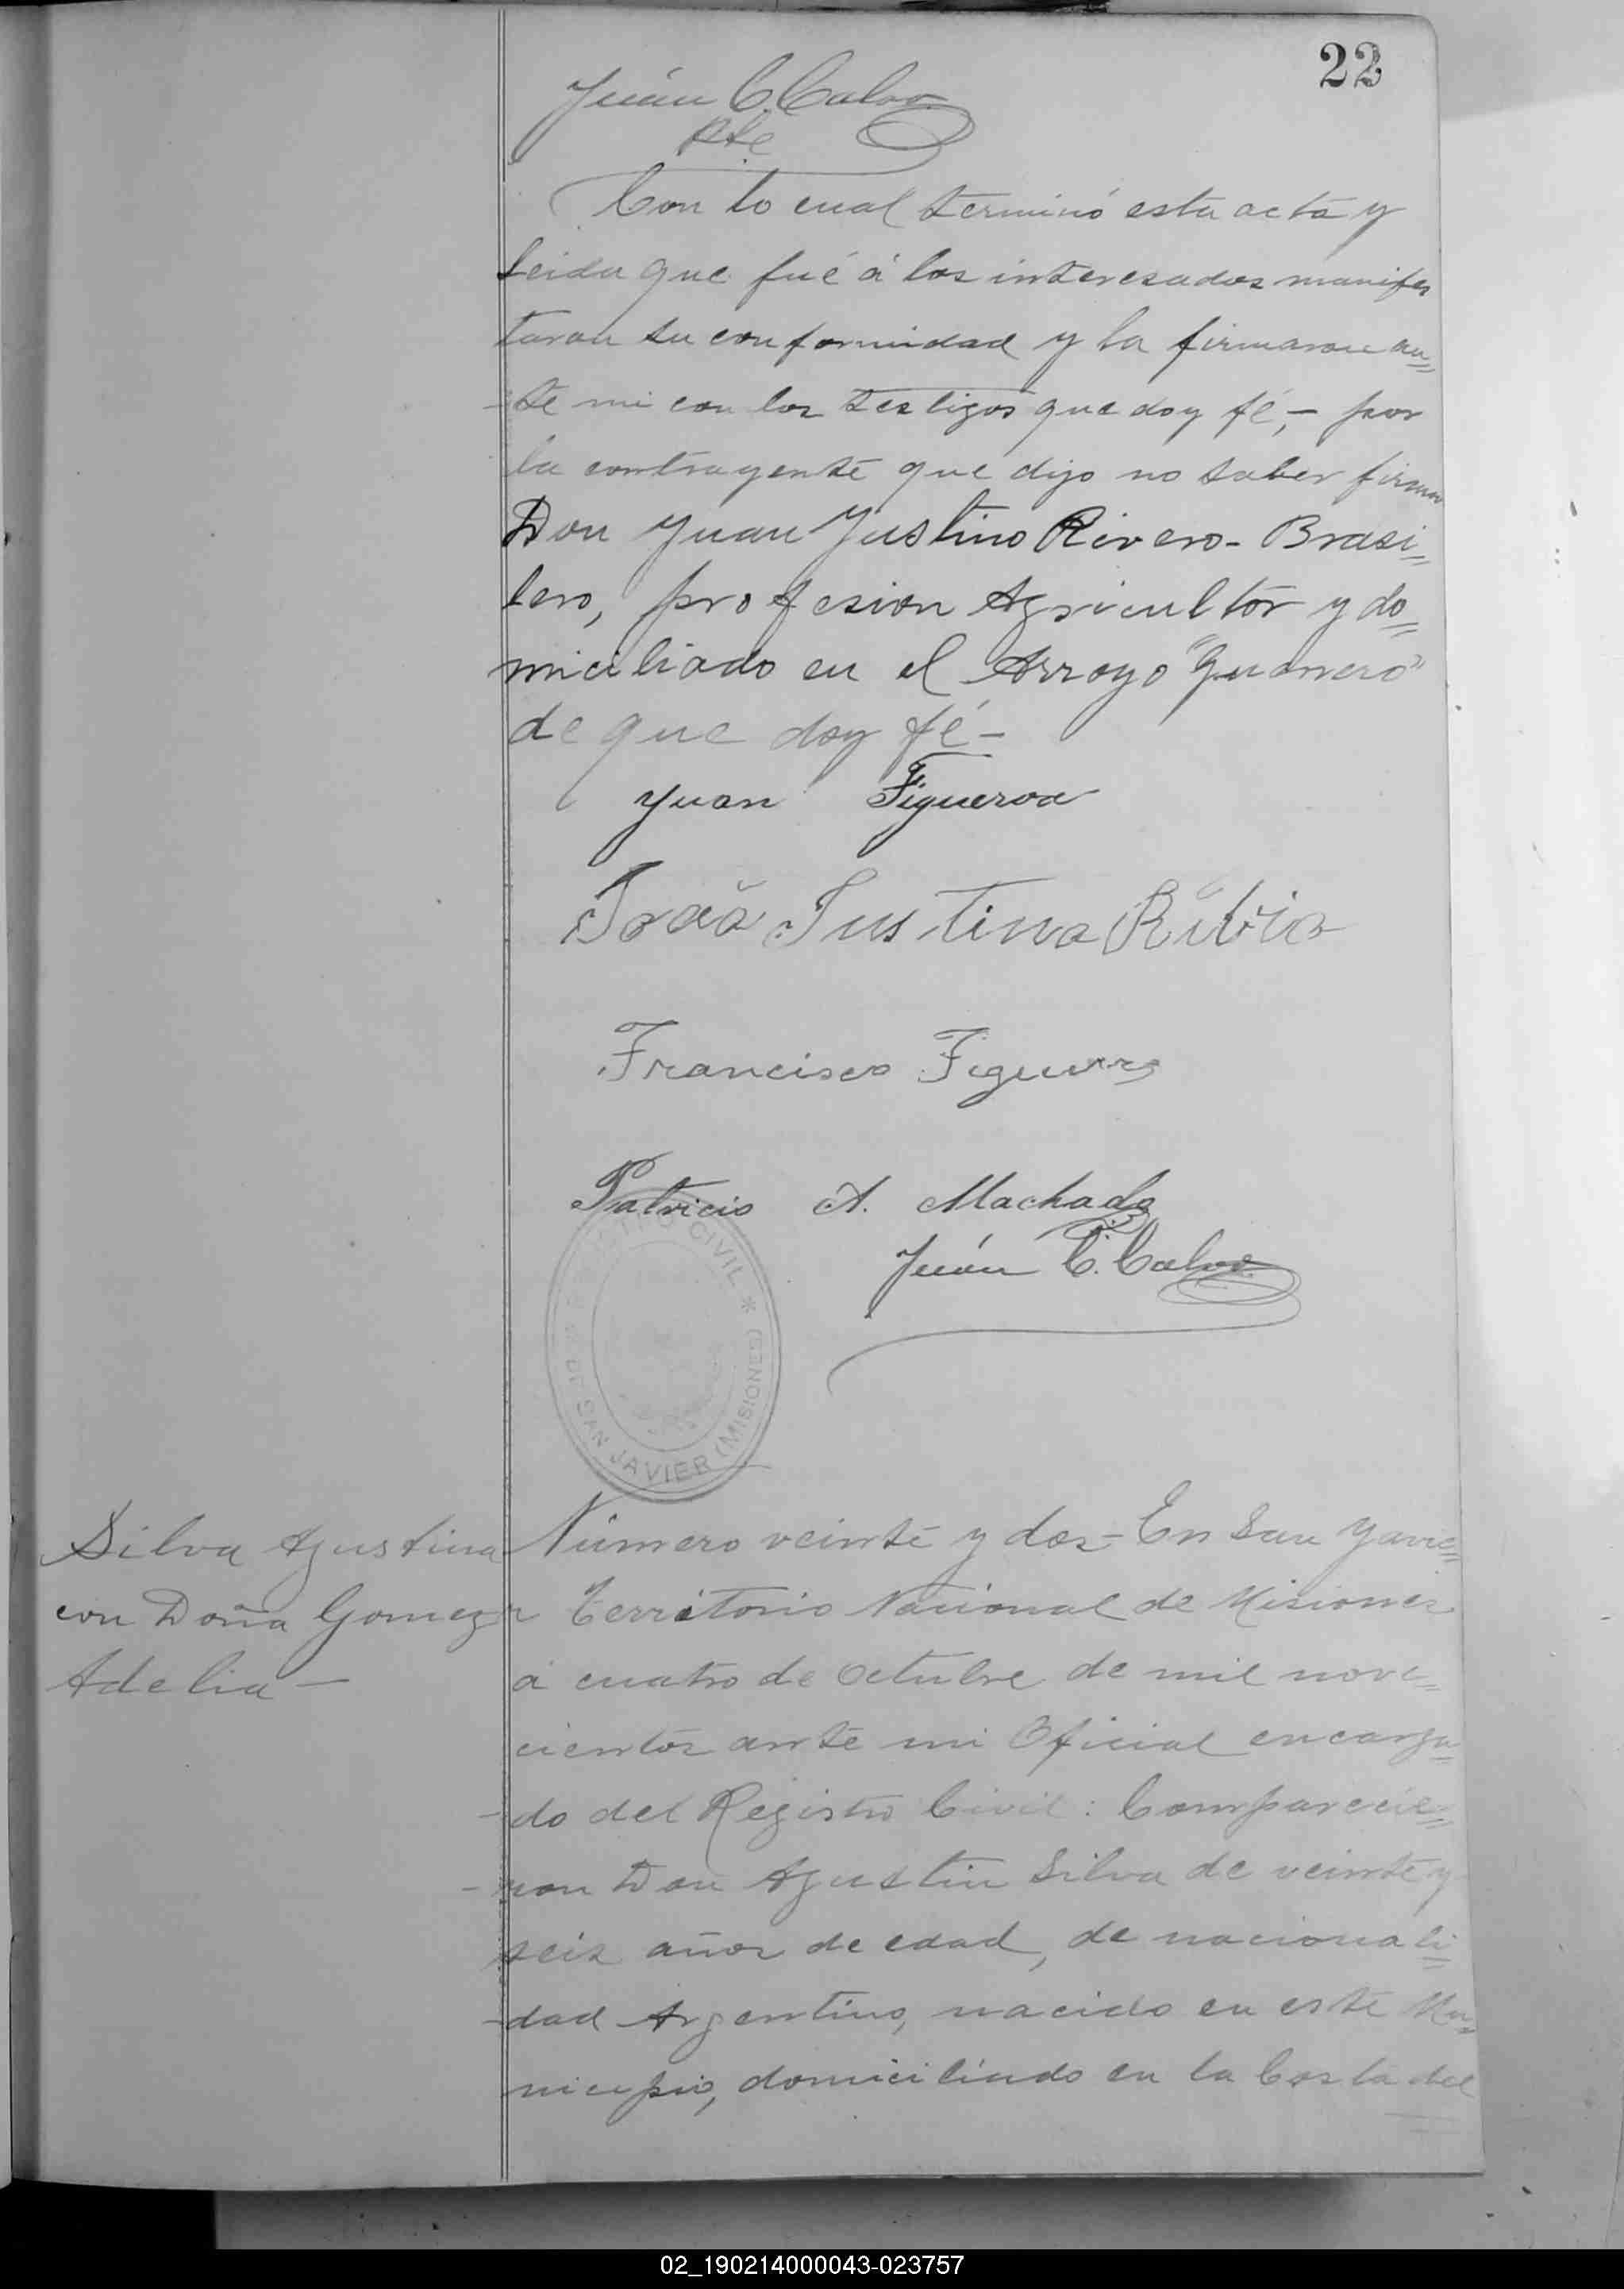 22
Juán C. Calvo
Pte
Con lo cual terminó esta acta y
leida que fué á los interesados manifes
taron su conformidad y la firmaron an=
-te mi con los testigos que doy fé,- por
la contrayente que dijo no saber firmar
Don Juan Justino Rivero- Brasi=
lero, profesion Agricultor y do=
miciliado en el Arroyo "Guarrero"
de que doy fé-
Juan Figueroa
João Justino Ribio
Francisco Figueroa
Patricio A. Machado
Juán C. Calvo
REGISTRO CIVIL * DE SAN JAVIER (MISIONES)
Silva Agustina
con Doña Gomez
Adelia-
Número veinte y dos- En San Javie=
r Territorio Nacional de Misiones
á cuatro de Octubre de mil nove=
cientos ante mi Oficial encarga=
-do del Registro Civil: Comparecie=
-ron Don Agustin Silva de veinte y
seis años de edad, de nacionali=
-dad Argentino, nacido en este Mu=
nicipio, domiciliado en la Costa del
02_190214000043-023757